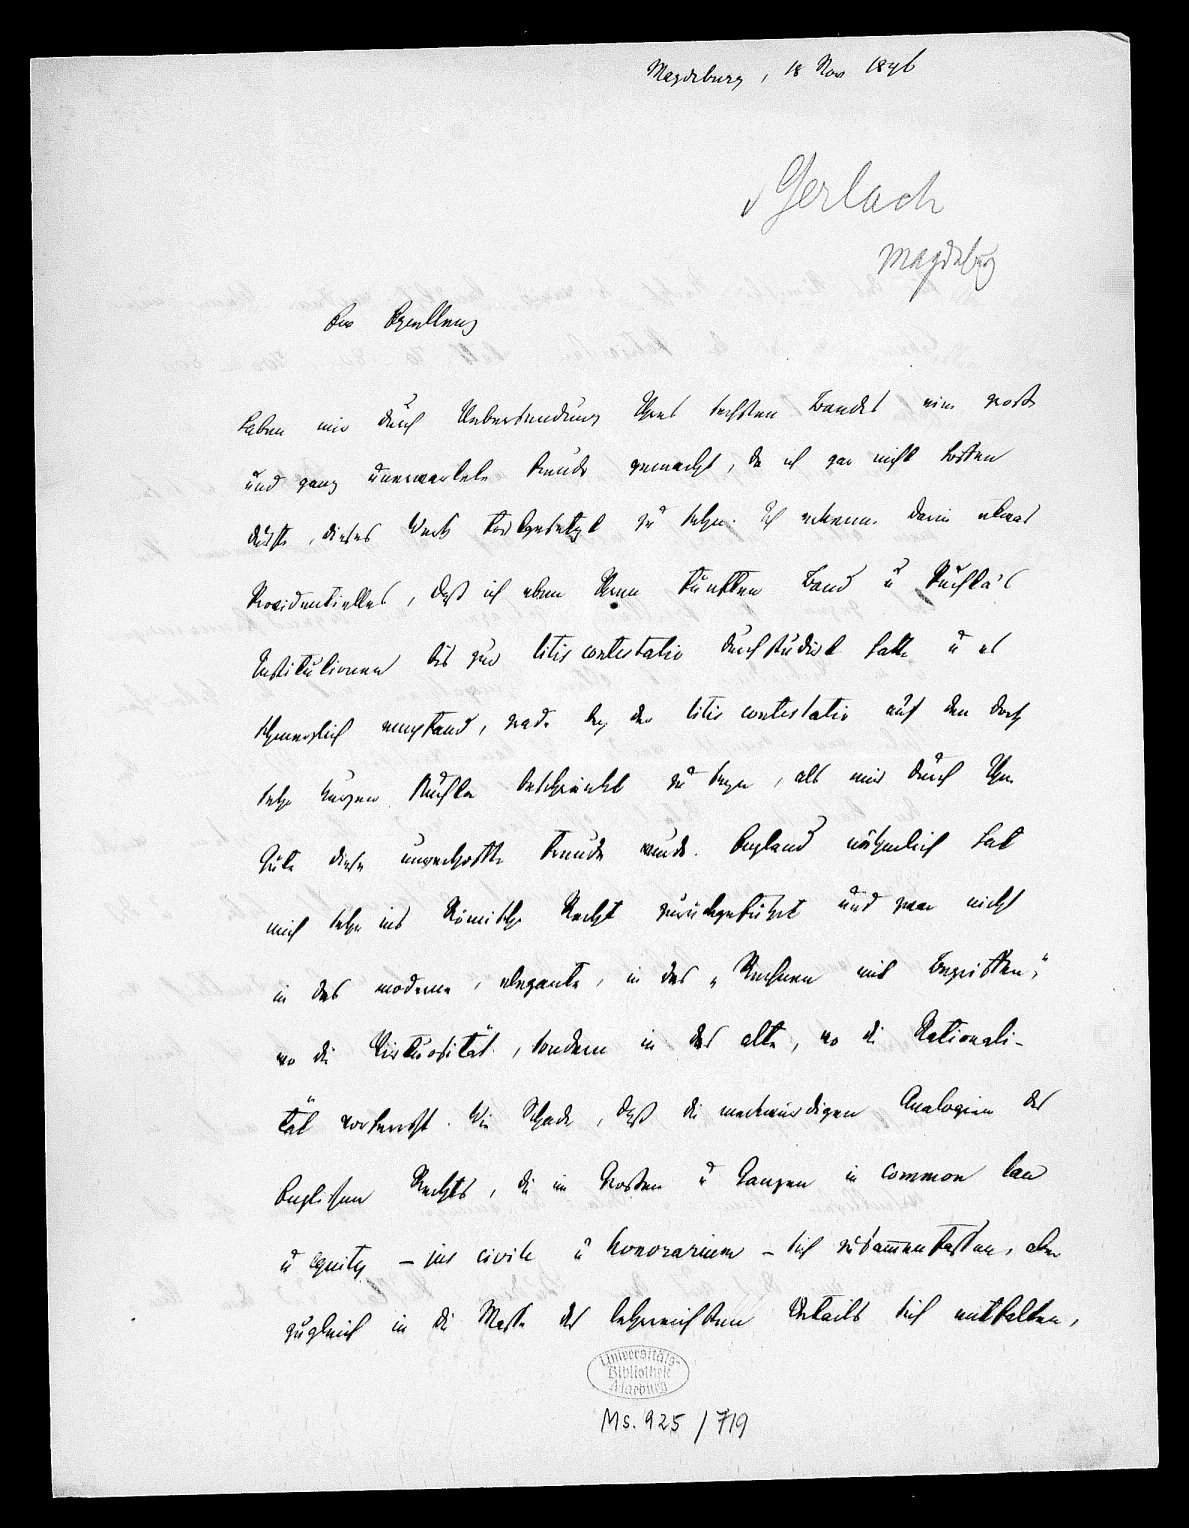 Magdeburg, 18 Nov 1846
v Gerlach
Magdeburg
Ew Excellenz
haben mir durch Uebersendung Ihres sechsten Bandes eine große
und ganz unerwartete Freude gemacht, da ich gar nicht hoffen
durfte, dieses Werk fortgesetzt zu sehn. Ich erkenne darin etwas
Providentielles, daß ich eben Ihren fünften Band u Puchta's
Institutionen bis zur litis contestatio durchstudirt hatte u es
schmerzlich empfand, grade bey der litis contestatio auf den doch
sehr kurzen Puchta beschränkt zu seyn, als mir durch Ihre
Güte diese unverhoffte Freude wurde. England nähmlich hat
mich sehr ins Römische Recht zurückgeführt und zwar nicht
in das moderne, elegante, in das „Rechnen mit Begriffen,"
wo die Virtuosität, sondern in das alte, wo die Nationali-
tät vorherrscht. Wie Schade, daß die merkwürdigen Analogien des
Englischen Rechts, die im Großen u Ganzen in common law
u equity – jus civile u honorarium – sich zusammenfassen, aber
zugleich in die Masse der lehrreichsten Details sich entfalten,
Universitäts-
Bibliothek
Marburg
Ms. 925 / 719